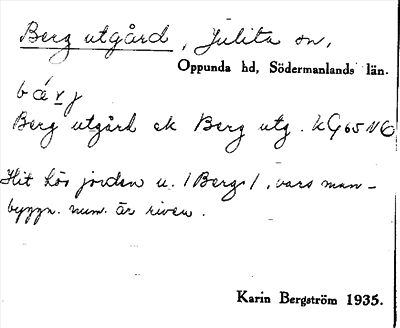 Berg utgård, Julita sn,
Oppunda hd, Södermanlands län.
bærj
Berg utgård ek Berg utg. KG65 NO
Hit hör jorden u. /Berg/, vars man-
byggn. num. är riven.
Karin Bergström 1935.